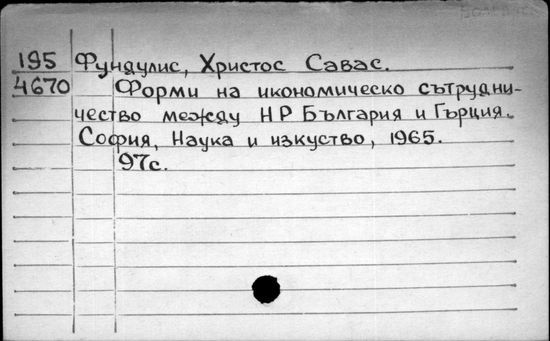 195 Фундулис, Христос Савас.
4670 Форми на икономическо сътрудни-
чество между НР България и Гърция.
София, Наука и изкуство, 1965.
97с.